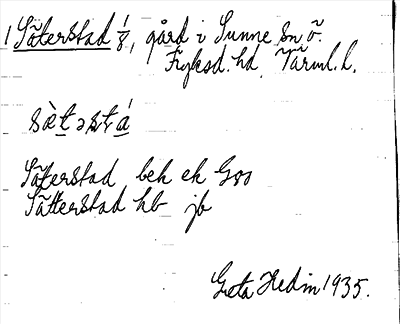 1 Säterstad 1/8, gård i Sunne sn ö.
Fryksd. hd, Värml. l.
sæ̀tǝstá
Säterstad beh ek Gso
Sätterstad hb jb
Greta Hedin 1935.